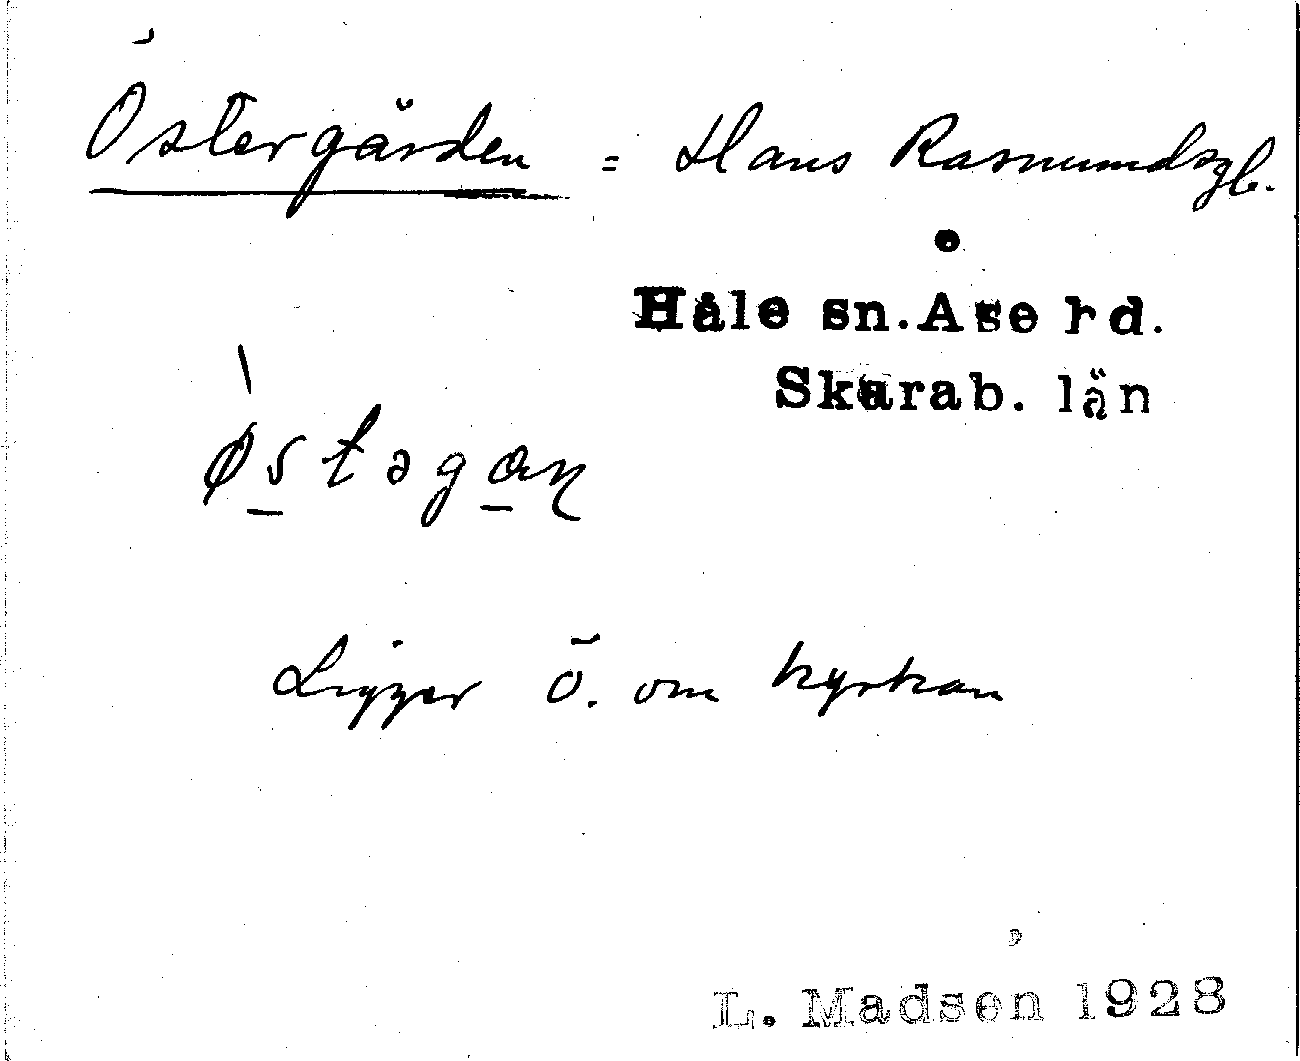 Östergården = Hans Rasmundsgb.
Håle sn. Åse hd.
Skarab. län
øs̲təga̲ɳ
Ligger ö. om kyrkan
L. Madsen 1928